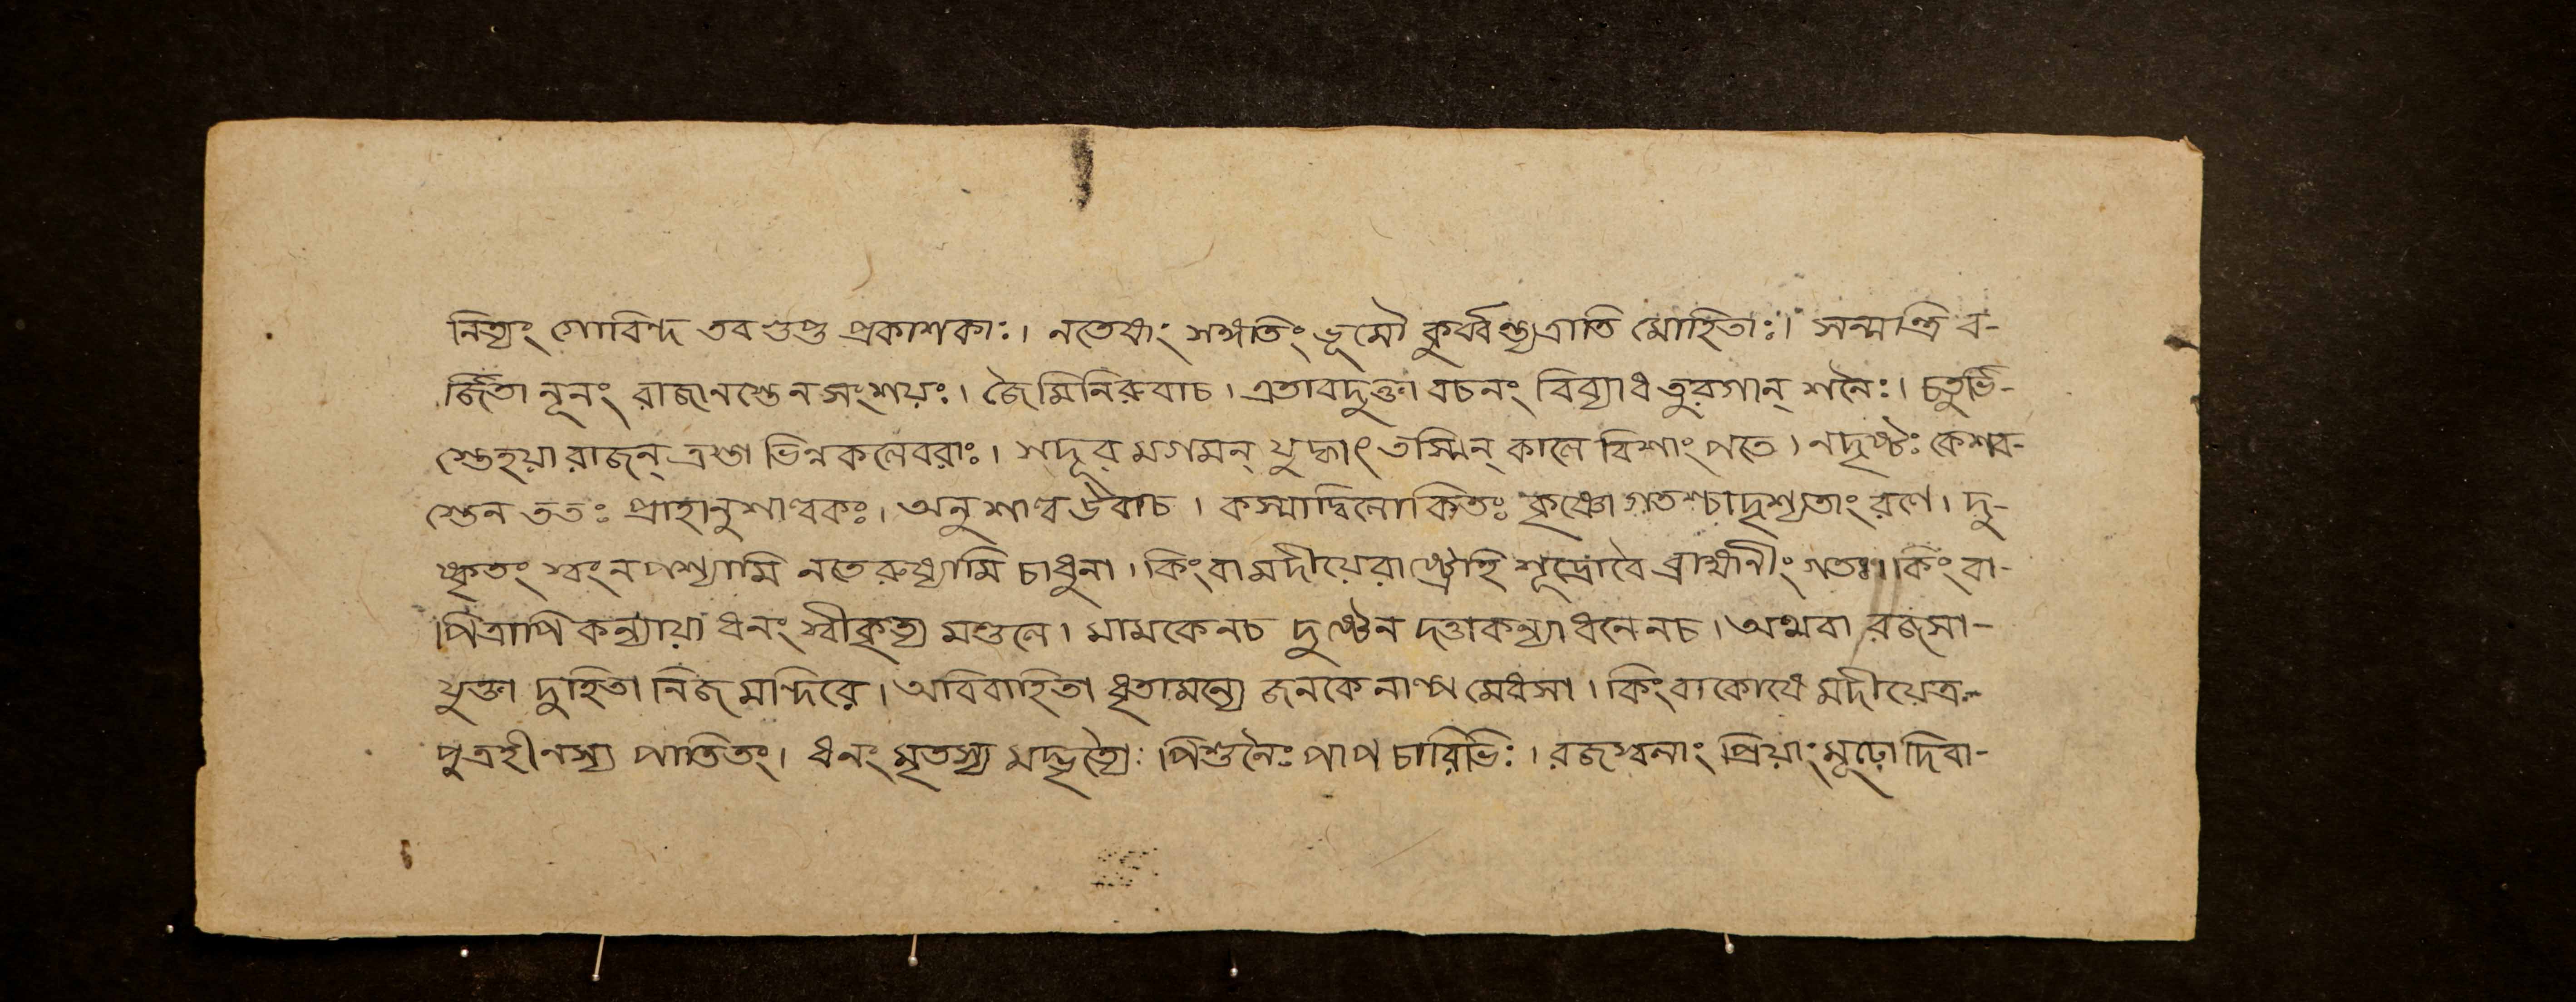 নিত্যং গোবিন্দ তব গুপ্ত প্রকাশকাঃ। নতেষাং সঙ্গতিং ভূমৌ কুর্ব্বন্ত্যত্রাতি মোহিতাঃ। সন্মন্ত্রি ব-
র্জিতা নূনং রাজানস্তেন সংশয়ঃ। জৈমিনিরুবাচ। এতাবদুক্তা বচনং বিব্যাধ তুরগান্ শনৈঃ। চতুর্ভি-
স্তেহয়া রাজন্ ত্রস্তা ভিন্নকলেবরাঃ। শদূর মগমন্ যুদ্ধাৎ তস্মিন্ কালে বিশাংপতে। নদৃষ্টঃ কেশব-
স্তেন ততঃ প্রাহানুশাল্বকঃ। অনুশাল্ব উবাচ। কস্মাদ্বিলোকিতঃ কৃষ্ণোগতশ্চাদৃশ্যতাং রণে। দু-
ষ্কৃতং স্বং নপশ্যামি নতে রুষ্যামি চাধুনা। কিংবা মদীয়েরাষ্ট্রেহি শূদ্রোবৈ ব্রাহ্মনীং গতঃ। কিংবা-
পিত্রাপি কন্যায়া ধনং স্বীকৃত্য মণ্ডলে। মামকেনচ দুষ্টেন দত্তাকন্যা ধনেনচ। অথবা রজসা-
যুক্তা দুহিতা নিজমন্দিরে। অবিবাহিতা ধৃতামন্যে জনকেনাল্প মেধসা। কিংবাকোষে মদীয়েত্র-
পুত্রহীনস্য পাতিতং। ধনং মৃতস্য মদ্ভৃত্যৈঃ পিশুনৈঃ পাপচারিভিঃ। রজস্বলাং প্রিয়াং মূঢ়ো দিবা-